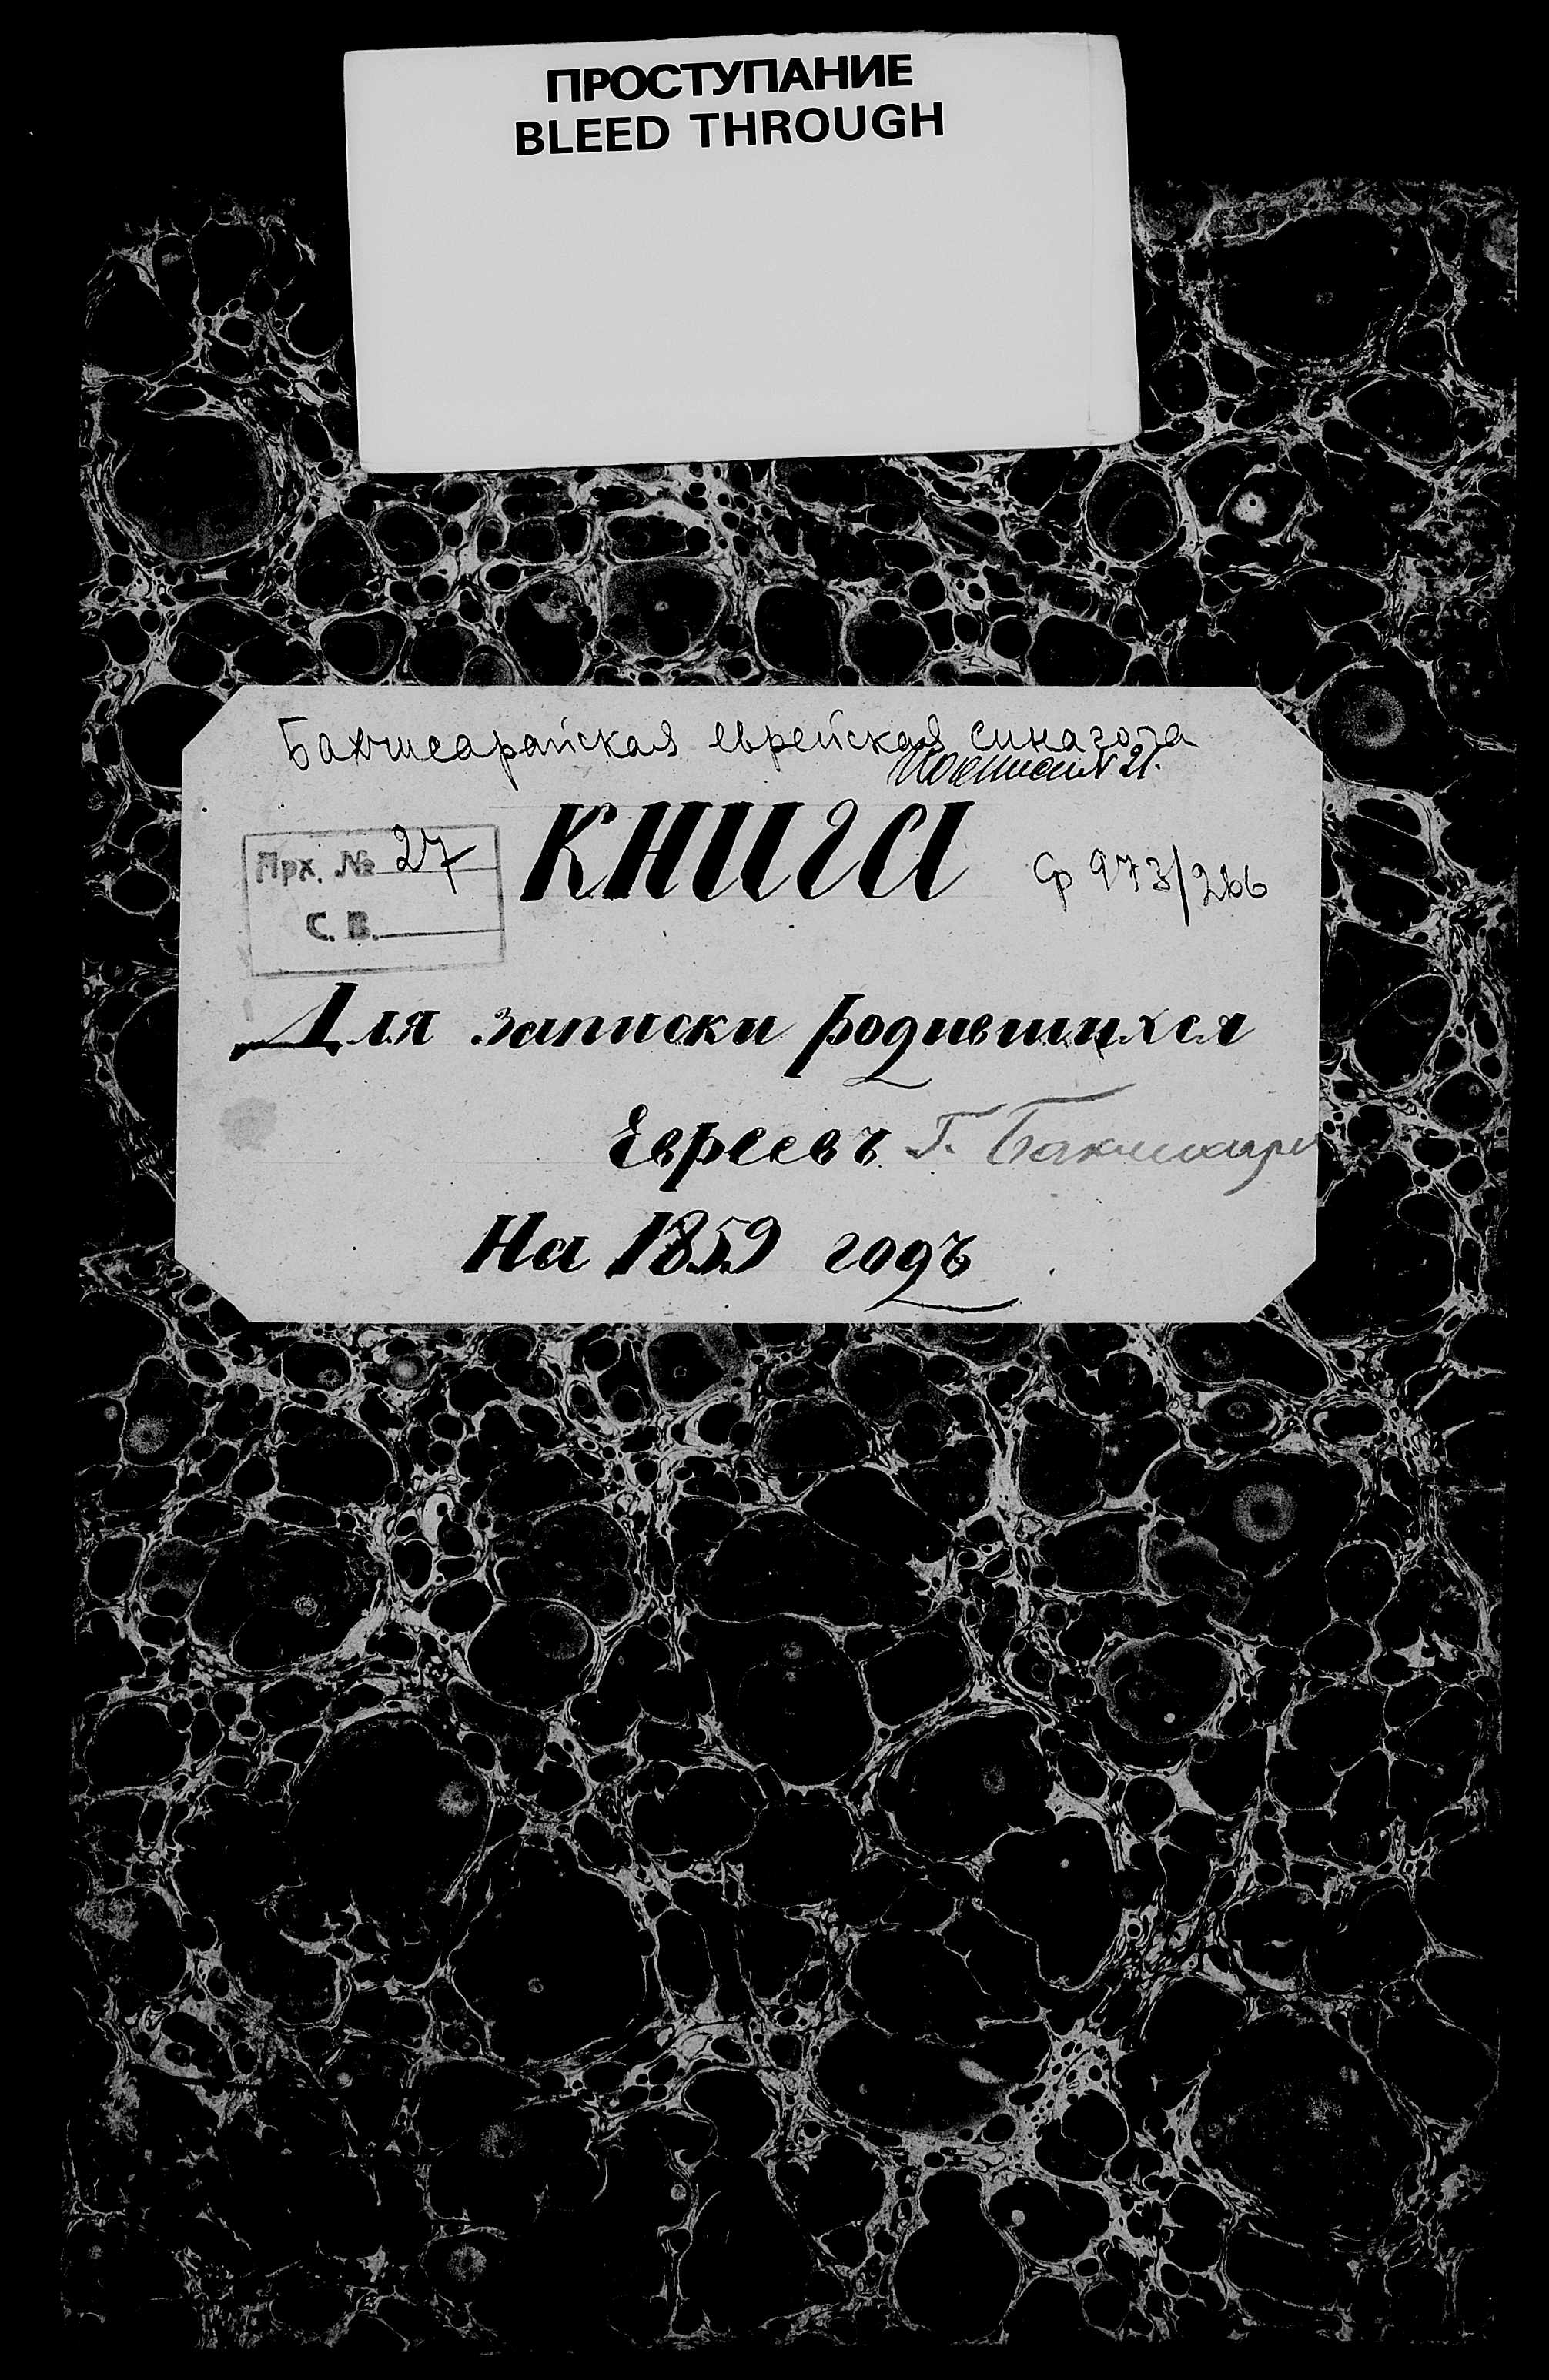 ПРОСТУПАНИЕ
BLEED THROUGH
Бахчисарайская еврейская синагога
По описи № 21.
КНИГА
Арх. № 27
С. В.
ф 973/266
Для записки родившихся
Евреевъ Г. Бакчисарая
На 1859 годъ